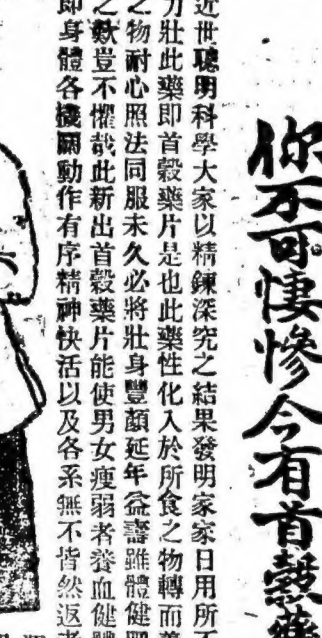 你不可悽慘今有首縠藥
近世聰明科學大家以精鍊深究之結果發明家家日用所
力壯此藥即首縠藥片是也此藥性化入於所食之物轉而
之物耐心照法同服未久必將壯身豐顏延年益壽雖體健
之歎豈不懼哉此新出首縠藥片能使男女瘦弱者養血健
即身體各機關動作有序精神快活以及各系無不皆然返